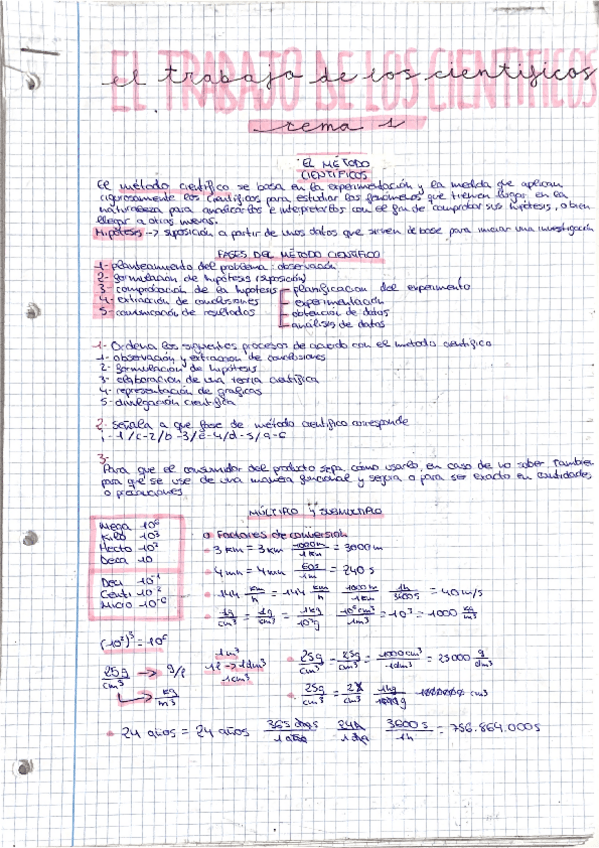 EL TRABAJO DE LOS CIENTIFICOS
el trabajo de los cientificos
tema 1
EL MÉTODO
CIENTÍFICOS
El método científico se basa en la experimentación y la medida que aplican
rigurosamente los científicos para estudiar los fenómenos que tienen lugar en la
naturaleza para analizarlos e interpretarlos con el fin de comprobar sus hipótesis, o bien
llegar a otras nuevas.
Hipótesis -> suposición a partir de unos datos que sirven de base para iniciar una investigación
FASES DEL MÉTODO CIENTÍFICO
1- planteamiento del problema: observación
2- formulación de hipótesis (suposición)
3- comprobación de la hipótesis planificación del experimento
4- extracción de conclusiones experimentación
5- comunicación de resultados obtención de datos
análisis de datos
1- Ordena los siguientes procesos de acuerdo con el metodo científico
1- observación y extracción de conclusiones
2- formulación de hipótesis
3- elaboración de una teoría científica
4- representación de graficas
5- divulgación científica
2- señala a que fase de método científico corresponde
1/c-2/b-3/e-4/d-5/a-6
3-
Para que el consumidor del producto sepa, cómo usarlo, en caso de no saber. También
para que se use de una manera funcional y segura o para ser exacto en cantidades
o precauciones
MÚLTIPLO Y SUBMÚLTIPLO
Mega 10⁶
Kilo 10³
Hecto 10²
Deca 10
Deci 10⁻¹
Centi 10⁻²
Micro 10⁻⁶
Factores de conversión
3 km = 3 km 1000m/1km = 3000m
4 min = 4 min 60s/1m = 240 s
144 km/h = 144 km/h 1000m/1km 1h/3600s = 40 m/s
1g/cm³ = 1g/cm³ = 1kg/10³g 10⁶cm³/1m³ = 10³ = 1000 kg/m³
(10²)³ = 10⁶
1m³
1l -> 1dm³
1cm³
25g/cm³ -> g/l
-> kg/m³
25g/cm³ = 25g/cm³ = 1000cm³/1dm³ = 25000 g/dm³
25g/cm³ = 1kg cm³
24 años = 24 años 365 días/1 año 24h/1 día 3600s/1h = 756.864.000s